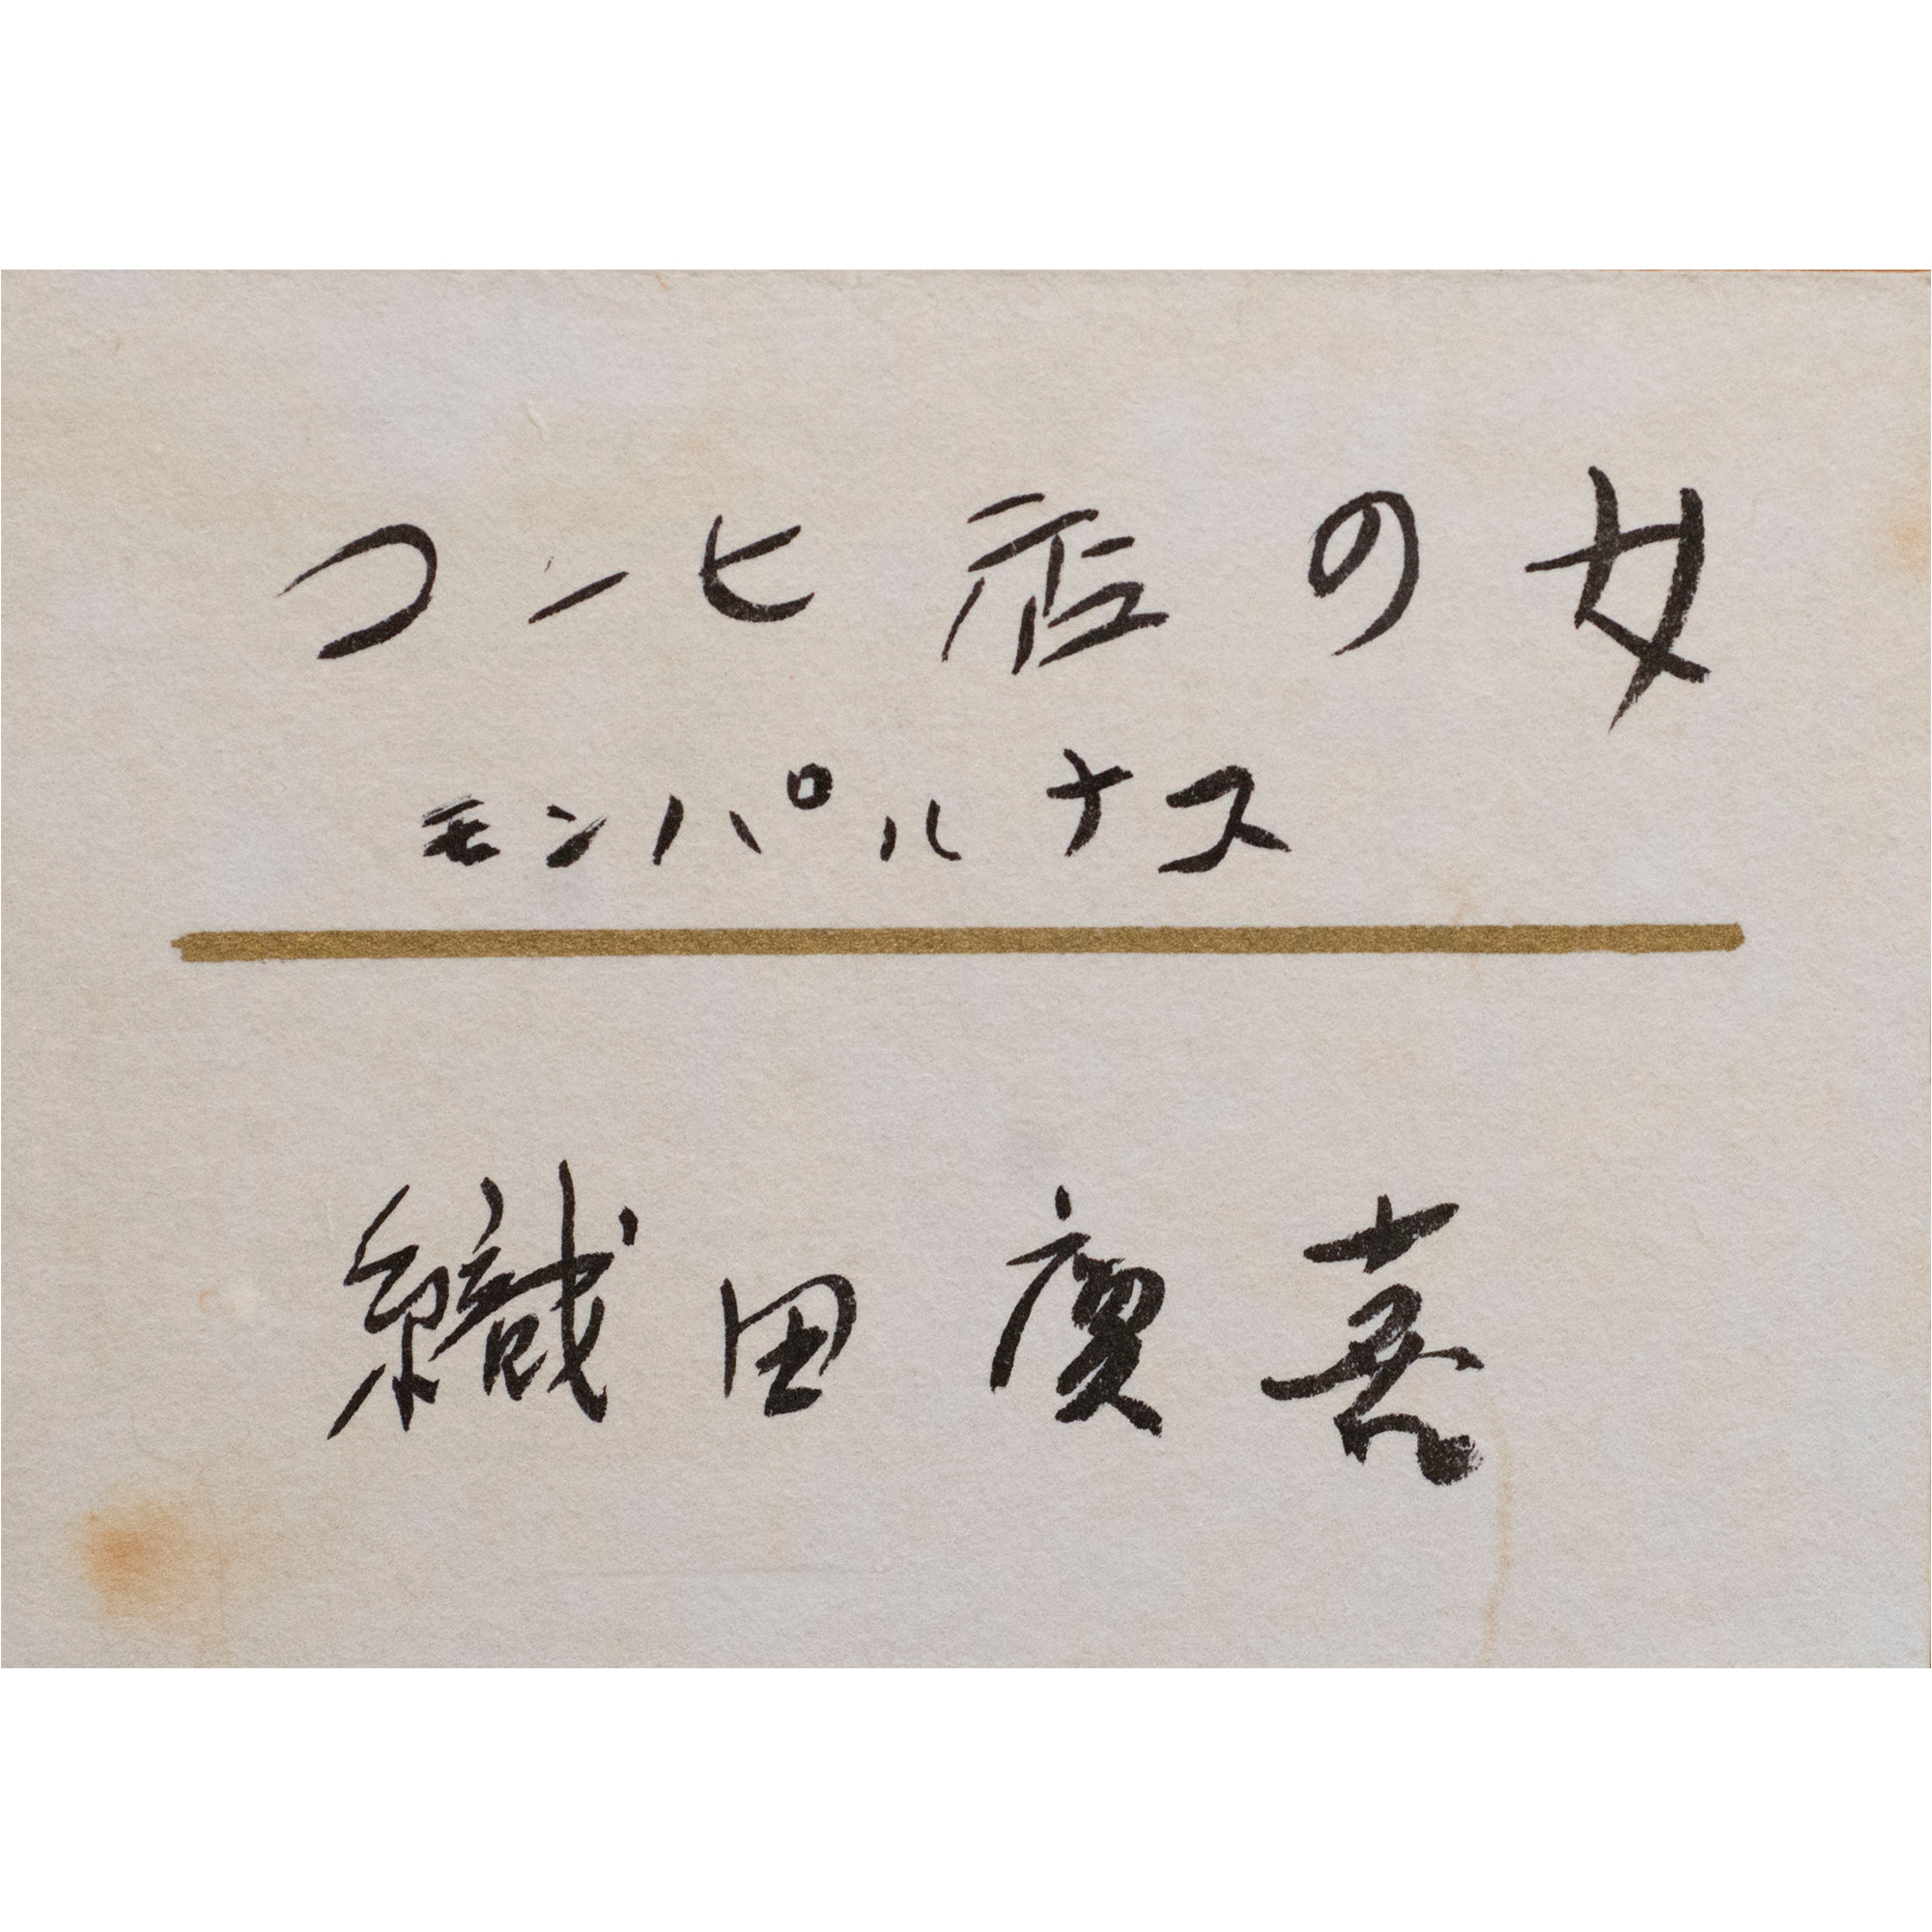 コーヒ店の女
モンパルナス
織田廣喜